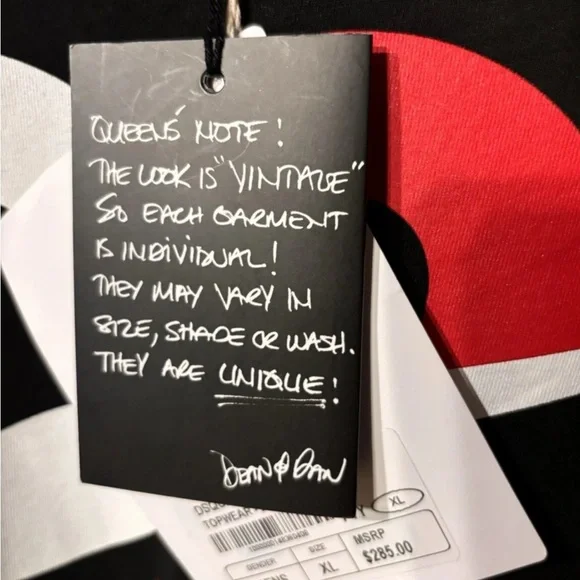 QUEENS' NOTE!
THE LOOK IS "VINTAGE"
SO EACH GARMENT
IS INDIVIDUAL!
THEY MAY VARY IN
SIZE, SHADE OR WASH.
THEY ARE UNIQUE!
DEAN & DAN
DSQU
TOPWEAR
XL
GENDER
SIZE
MSRP
ENS
XL
$285.00